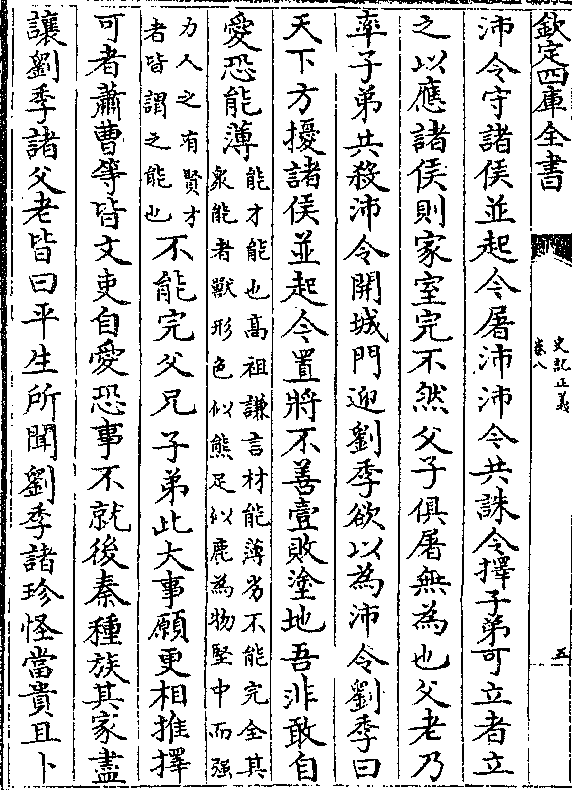 欽定四庫全書
史記正義
卷八
五
沛令守諸侯並起今屠沛沛令共誅令擇子弟可立者立
之以應諸侯則家室完不然父子俱屠無為也父老乃
率子弟共殺沛令開城門迎劉季欲以為沛令劉季曰
天下方擾諸侯並起今置將不善壹敗塗地吾非敢自
愛恐能薄能才能也高祖謙言材能薄劣不能完全其
衆能者獸形色似熊足似鹿為物堅中而强
力人之有賢才
者皆謂之能也不能完父兄子弟此大事願更相推擇
可者蕭曹等皆文吏自愛恐事不就後秦種族其家盡
讓劉季諸父老皆曰平生所聞劉季諸珍怪當貴且卜